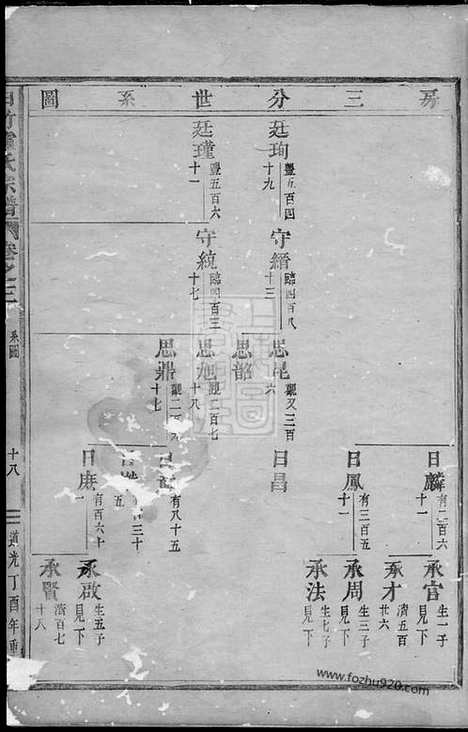 房三分世系圖
廷珣 豐五百四十九
廷瑾 豐五百六十一
守縉 臨四百八十三
守統 臨四百三十七
思昆 觀又三百六
思韶
思旭 觀二百七十八
思鼎 觀二百六十七
日麟 有二百六十一
日鳳 有三百五十一
日昌
日 有八十五
有三十五
日庚 有百六十一
承官 生一子見下
承才 濟五百廿六
承周 生三子見下
承法 生七子見下
承啟 生五子見下
承賢 濟百七十八
氏宗譜 卷之三
系圖
十八
道光丁酉年重
www.fozhu920.com